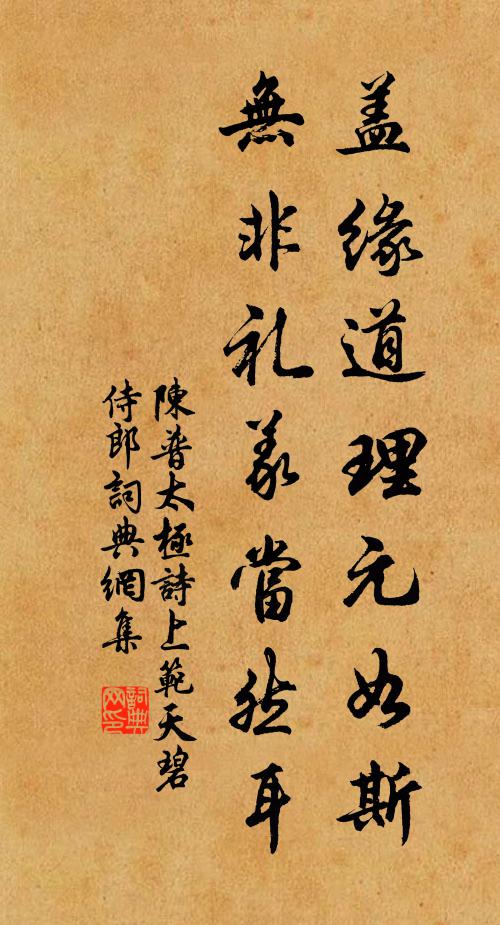 盖缘道理元如斯
無非礼義當然耳
陳普太極詩上範天碧
侍郎詞典網集
詞典网印